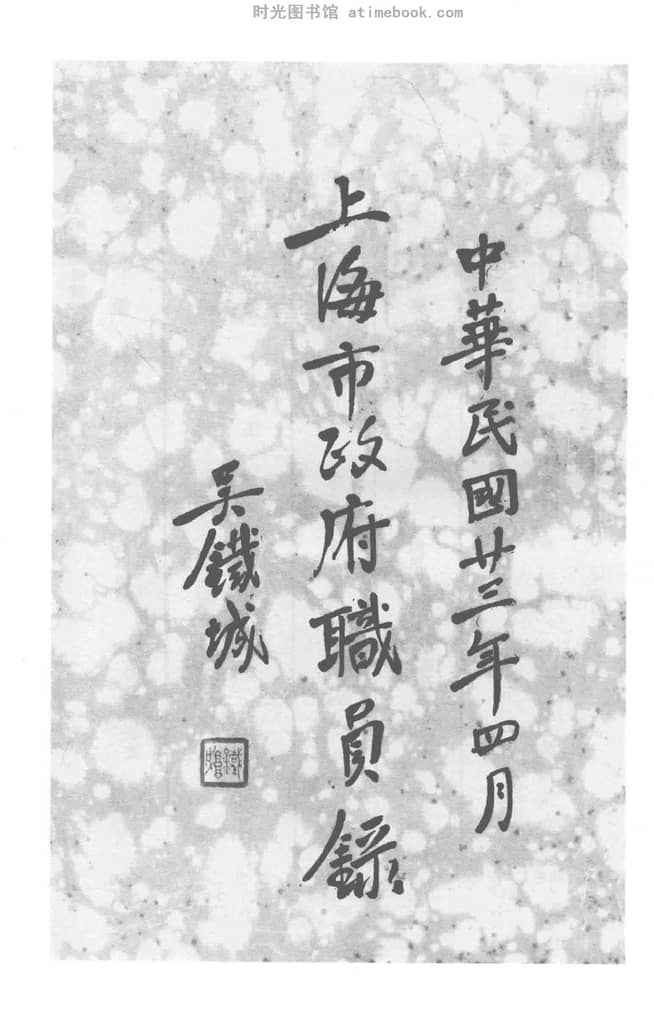 时光图书馆 atimebook.com
中華民國廿三年四月
上海市政府職員錄
吴鐵城
鐵城